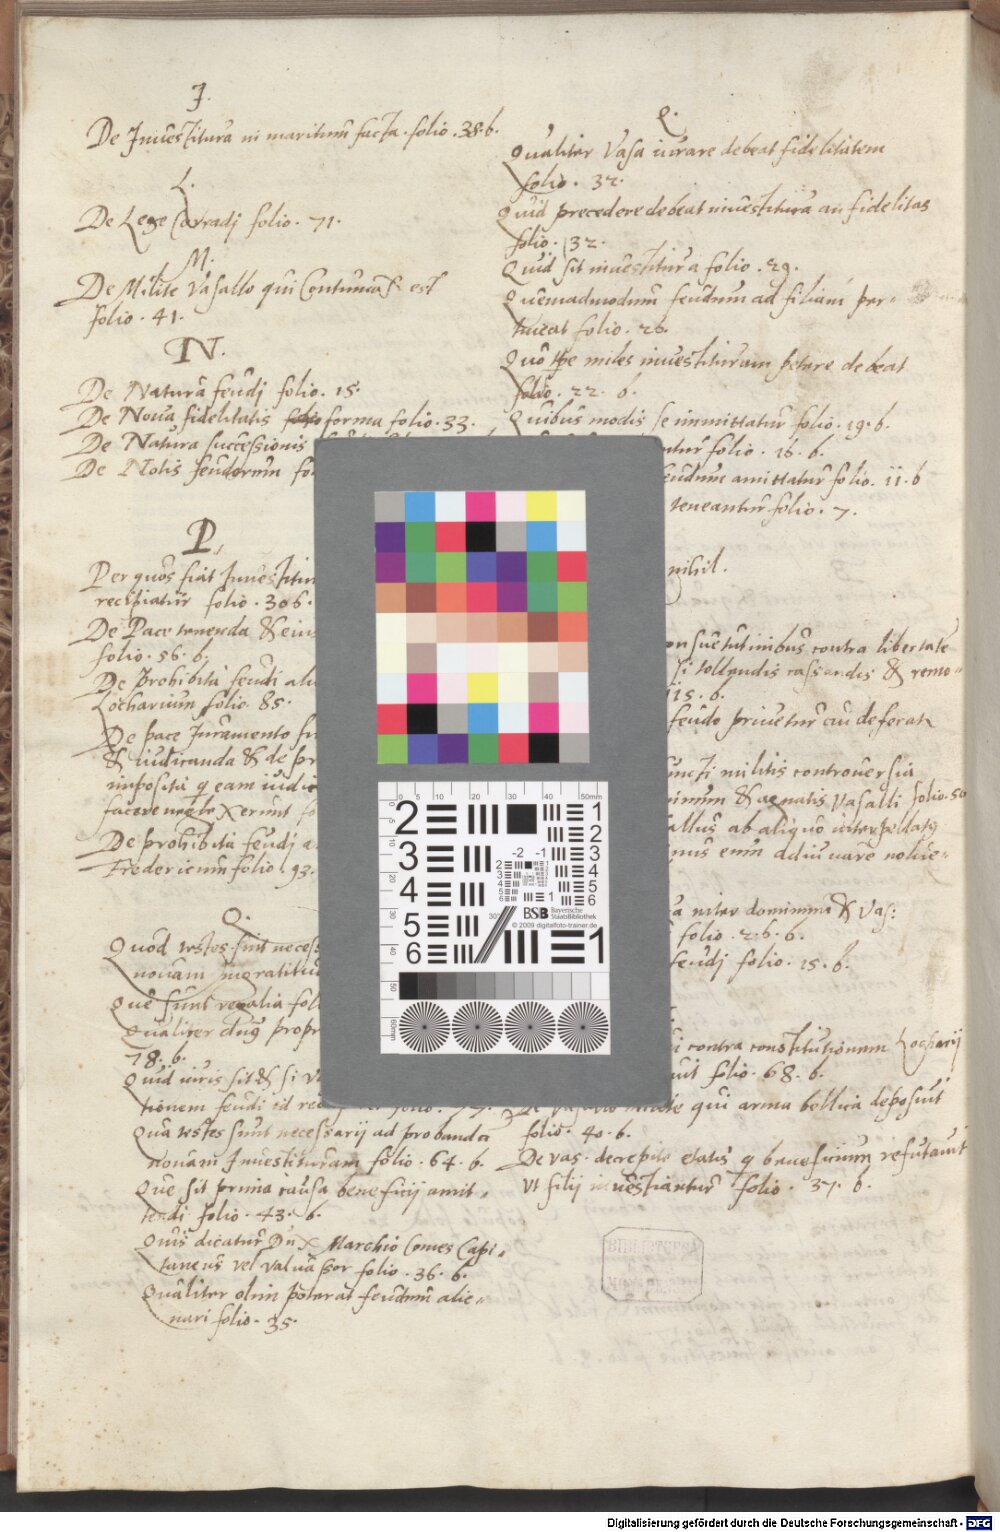 J.
De Inuestitura in maritum facta. folio. 38. b.
L.
De Lege Corradj folio. 71.
M.
De Milite Vasallo qui Contumax est
folio. 41.
N.
De Natura feudj folio. 15.
De Noua fidelitatis forma folio. 33.
De Natura successionis
De Notis feudorum fo
P.
Per quos fiat Inuestitur
recipiatur folio. 30 b.
De Pace tenenda & eius
folio. 56. b.
De Prohibita feudi ali
Lotharium folio. 85.
De pace Iuramento fir
& iudicanda & de pr
imposita q eam iudic
facere neglexerunt fo
De prohibita feudi a
Fredericum folio. 93.
Q.
Quod testes sint necess
nouam ingratitud
Que sunt regalia fol
Qualiter propr
78. b.
Quid iuris sit & si V
tionem feudi id
Qua testes sunt necessarij ad probanda
nouam Inuestituram folio. 64. b.
Que sit prima causa beneficij amit-
tendi folio. 43. b.
Quis dicatur Dux Marchio Comes Capi-
taneus vel valuassor folio. 36. b.
Qualiter olim poterat feudum alie-
nari folio. 35.
Q.
Qualiter Vasa iurare debeat fidelitatem
folio. 32.
Quid precedere debeat inuestitura an fidelitas
folio. 32.
Quid sit inuestitura folio. 29.
Quemadmodum feudum ad filiam per-
tineat folio. 26.
miles inuestituram petere debeat
folio. 22. b.
Quibus modis se inmittatur folio. 19. b.
ntur folio. 16. b.
feudum amittatur folio. 11. b
teneantur folio. 7.
nihil.
onsuetutinibus contra libertate
si tollendis cassandis & remo-
115. b.
feudo priuetur cui deferat
uncti militis controuersia
inum & agnatis Vasalli folio. 50
allus ab aliquo interpellatus
nus enim adiuuare nolue-
a inter dominum & Vas:
folio. 26. b.
feudj folio. 15. b.
i contra constitutionem Lotharij
uit folio. 68. b.
qui arma bellica deposuit
folio. 40. b.
De vas. decrepite etatis q beneficium refutauit
vt filij inuestiantur folio. 37. b.
0 10 20 30 50mm
2 1
2
3 3
4 4
5
5 6
6 1
-2 -1
BSB Bayerische StaatsBibliothek
© 2009 digitalfoto-trainer.de
Digitalisierung gefördert durch die Deutsche Forschungsgemeinschaft - DFG